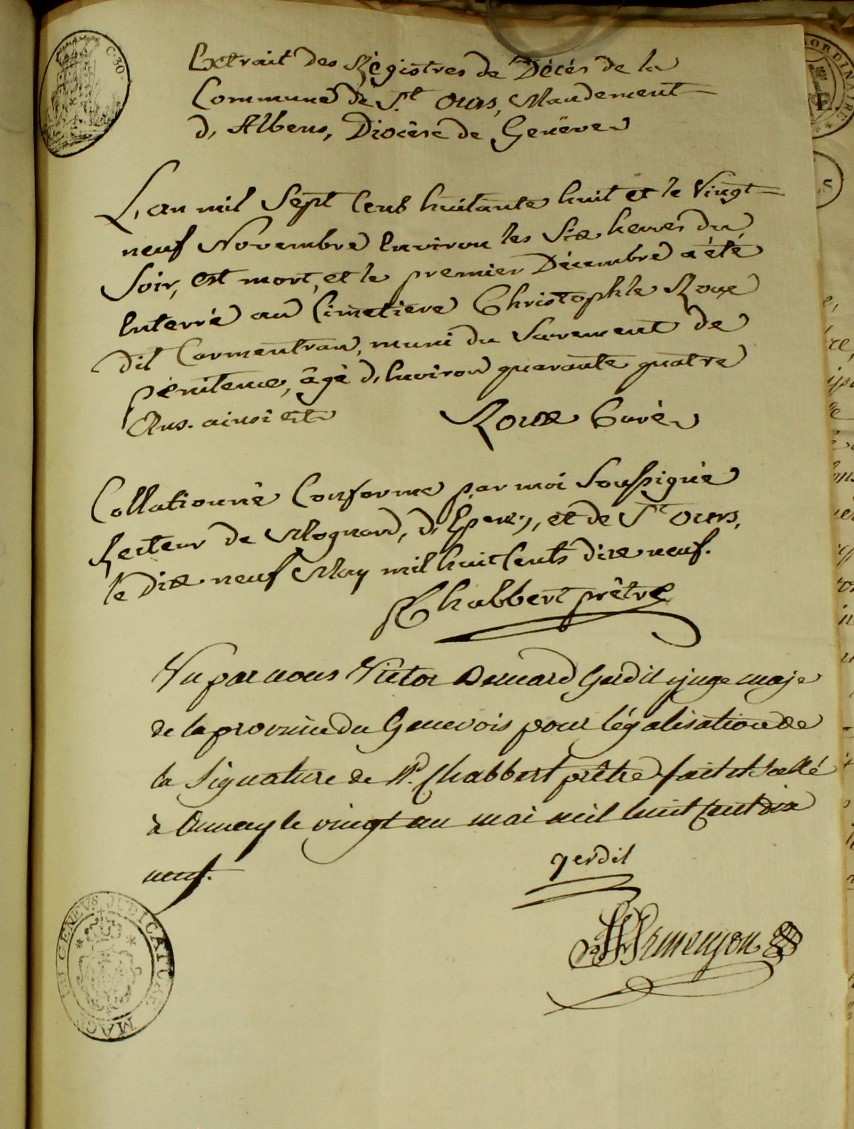 C. 30
Extrait des Régistres de Décés de la
Commune de St. Ours, Mandement
d'Albens, Diocèse de Genève
L'an mil Sept Cent huitante huit et le Vingt
neuf Novembre Environ les Six heures du
Soir, est mort, et le premier Décembre a été
Enterré au Cimetiere Christophle Roux
dit Carmentran, muni du Sacrement de
Pénitence, âgé d'Environ quarante quatre
Ans. ainsi est Roux Curé
Collationné Conforme par moi Soussigné
Recteur de Mognard, d'Epersy, et de St. Ours,
le Dix neuf May mil huit Cents dix neuf.
Chabbert prêtre
Vu par nous Victor Bernard Gerdil juge maje
de la province du Genevois pour légalisation de
la Signature de Rd. Chabbert prêtre fait et Scellé
à Annecy le vingt un mai mil huit Cent dix
neuf.
Gerdil
GENEVS JUDICATUR MAG
ORDINAIRE